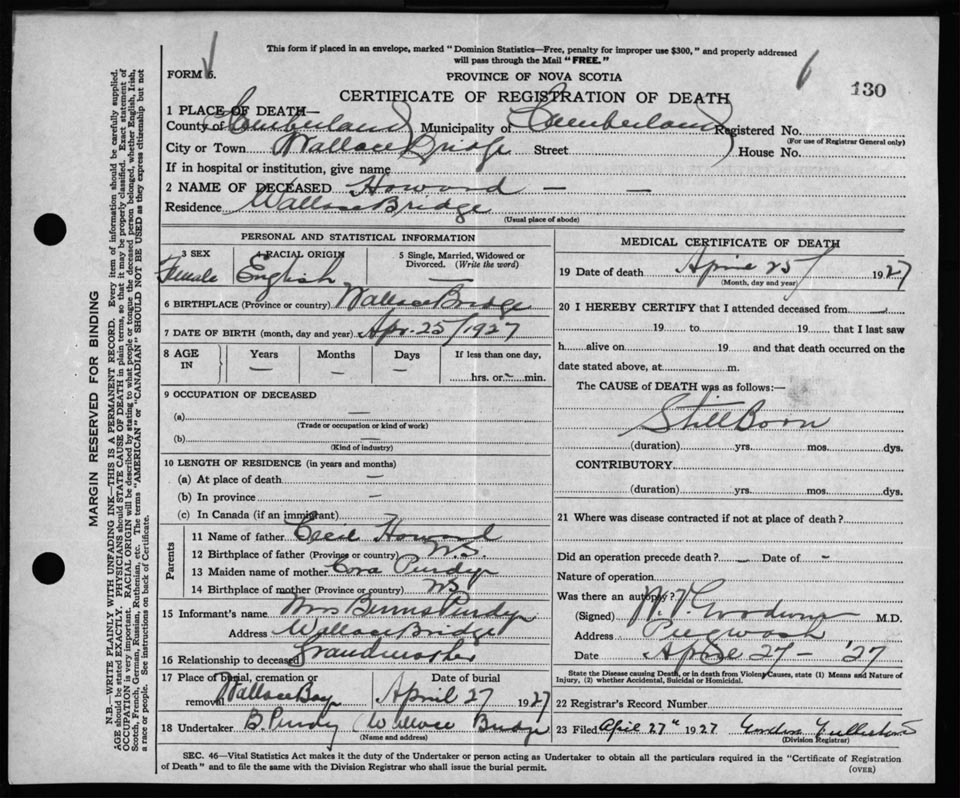 This form if placed in an envelope, marked "Dominion Statistics—Free, penalty for improper use $300," and properly addressed
will pass through the Mail "FREE."
FORM 6.
PROVINCE OF NOVA SCOTIA
130
CERTIFICATE OF REGISTRATION OF DEATH
1 PLACE OF DEATH—
County of Cumberland Municipality of Cumberland Registered No.
(For use of Registrar General only)
City or Town Wallace Bridge Street House No.
If in hospital or institution, give name
2 NAME OF DECEASED Howard — —
Residence Wallace Bridge
(Usual place of abode)
PERSONAL AND STATISTICAL INFORMATION
3 SEX Female
4 RACIAL ORIGIN English
5 Single, Married, Widowed or
Divorced. (Write the word)
—
6 BIRTHPLACE (Province or country) Wallace Bridge
7 DATE OF BIRTH (month, day and year) Apr. 25/1927
8 AGE
IN
Years —
Months —
Days —
If less than one day,
hrs. or — min.
9 OCCUPATION OF DECEASED
(a) —
(Trade or occupation or kind of work)
(b) —
(Kind of industry)
10 LENGTH OF RESIDENCE (in years and months)
(a) At place of death —
(b) In province —
(c) In Canada (if an immigrant)
Parents
11 Name of father Cecil Howard
12 Birthplace of father (Province or country) N.S.
13 Maiden name of mother Cora Purdy
14 Birthplace of mother (Province or country) NS
15 Informant's name Mrs Burns Purdy
Address Wallace Bridge
16 Relationship to deceased Grandmother
17 Place of burial, cremation or
removal Wallace Bay
Date of burial
April 27 1927
18 Undertaker B. Purdy Wallace Bridge
(Name and address)
MEDICAL CERTIFICATE OF DEATH
19 Date of death April 25 1927
(Month, day and year)
20 I HEREBY CERTIFY that I attended deceased from —
19 to 19 that I last saw
h alive on 19 and that death occurred on the
date stated above, at m.
The CAUSE of DEATH was as follows:—
Still Born
(duration) yrs. mos. dys.
CONTRIBUTORY
(duration) yrs. mos. dys.
21 Where was disease contracted if not at place of death?
Did an operation precede death? — Date of —
Nature of operation
Was there an autopsy?
(Signed) Goodwin M.D.
Address Pugwash
Date April 27 - '27
State the Disease causing Death, or in death from Violent Causes, state (1) Means and Nature of
Injury, (2) whether Accidental, Suicidal or Homicidal.
22 Registrar's Record Number
23 Filed April 27th 1927
(Division Registrar)
SEC. 46—Vital Statistics Act makes it the duty of the Undertaker or person acting as Undertaker to obtain all the particulars required in the "Certificate of Registration
of Death" and to file the same with the Division Registrar who shall issue the burial permit.
(OVER)
MARGIN RESERVED FOR BINDING
N.B.—WRITE PLAINLY WITH UNFADING INK—THIS IS A PERMANENT RECORD. Every item of information should be carefully supplied.
AGE should be stated EXACTLY. PHYSICIANS should STATE CAUSE OF DEATH in plain terms, so that it may be properly classified. Exact statement of
OCCUPATION is very important. RACIAL ORIGIN will be described by stating to what people or tongue the deceased person belonged, whether English, Irish,
Scotch, French, German, Russian, Ruthenian, etc. The terms "AMERICAN" or "CANADIAN" SHOULD NOT BE USED as they express citizenship but not
a race or people. See instructions on back of Certificate.